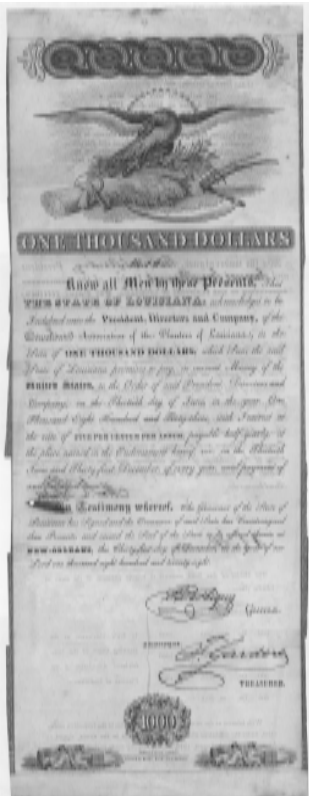 ONE THOUSAND DOLLARS
Know all Men by these Presents, That
THE STATE OF LOUISIANA, acknowledges to be
Indebted unto the President, Directors and Company, of the
Association of the Planters of Louisiana, in the
Sum of ONE THOUSAND DOLLARS, which Sum the said
State of Louisiana promises to pay, in current Money of the
United States, to the Order of said President, Directors and
Company, on the Thirtieth day of June, in the year One
Thousand Eight Hundred and, with Interest at
the rate of FIVE PER CENTUM PER ANNUM, payable half yearly at
the place named in the Endorsement hereof viz. on the Thirtieth
June and Thirty first December, of every year, until payment of
said
In Testimony whereof, the Governor of the State of
Louisiana has Signed and the Treasurer of said State has Countersigned
these Presents and caused the Seal of the State to be affixed thereto at
NEW-ORLEANS, the Thirty first day of December in the Year of our
Lord one thousand eight hundred and
Govnr.
TREASURER.
1000